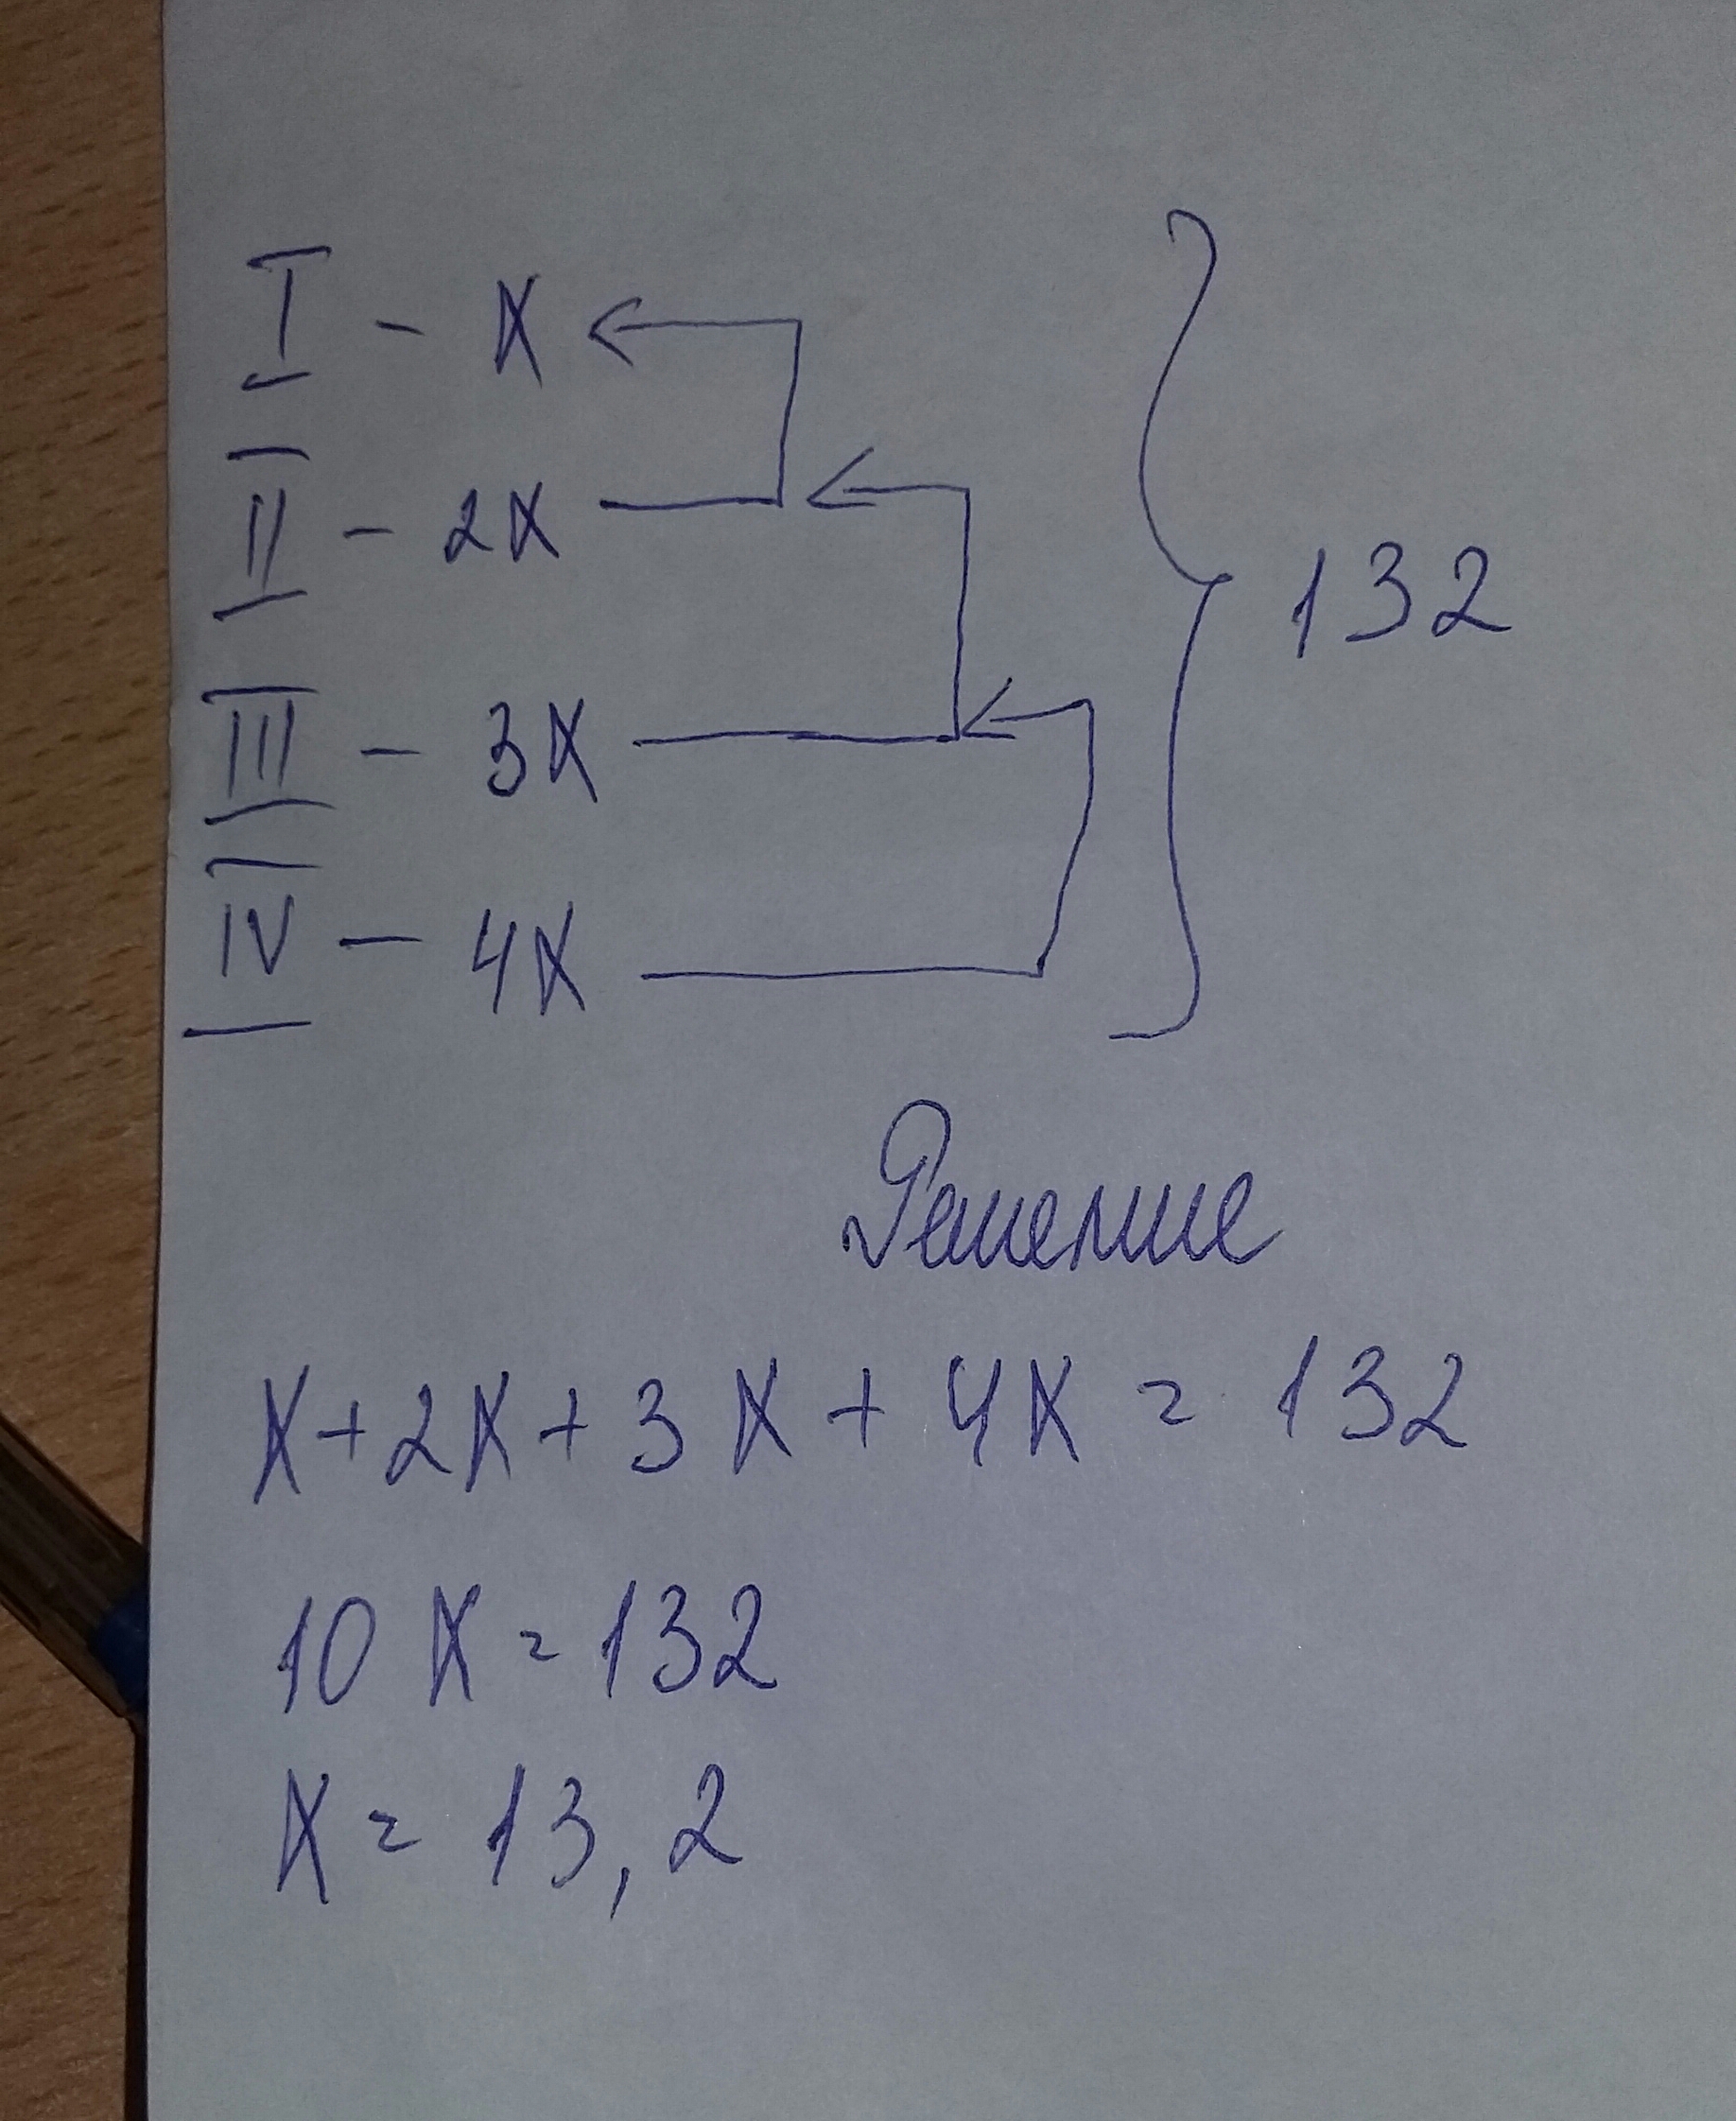 I - x
II - 2x
III - 3x
IV - 4x
132
Решение
x+2x+3x+4x=132
10x=132
x=13,2